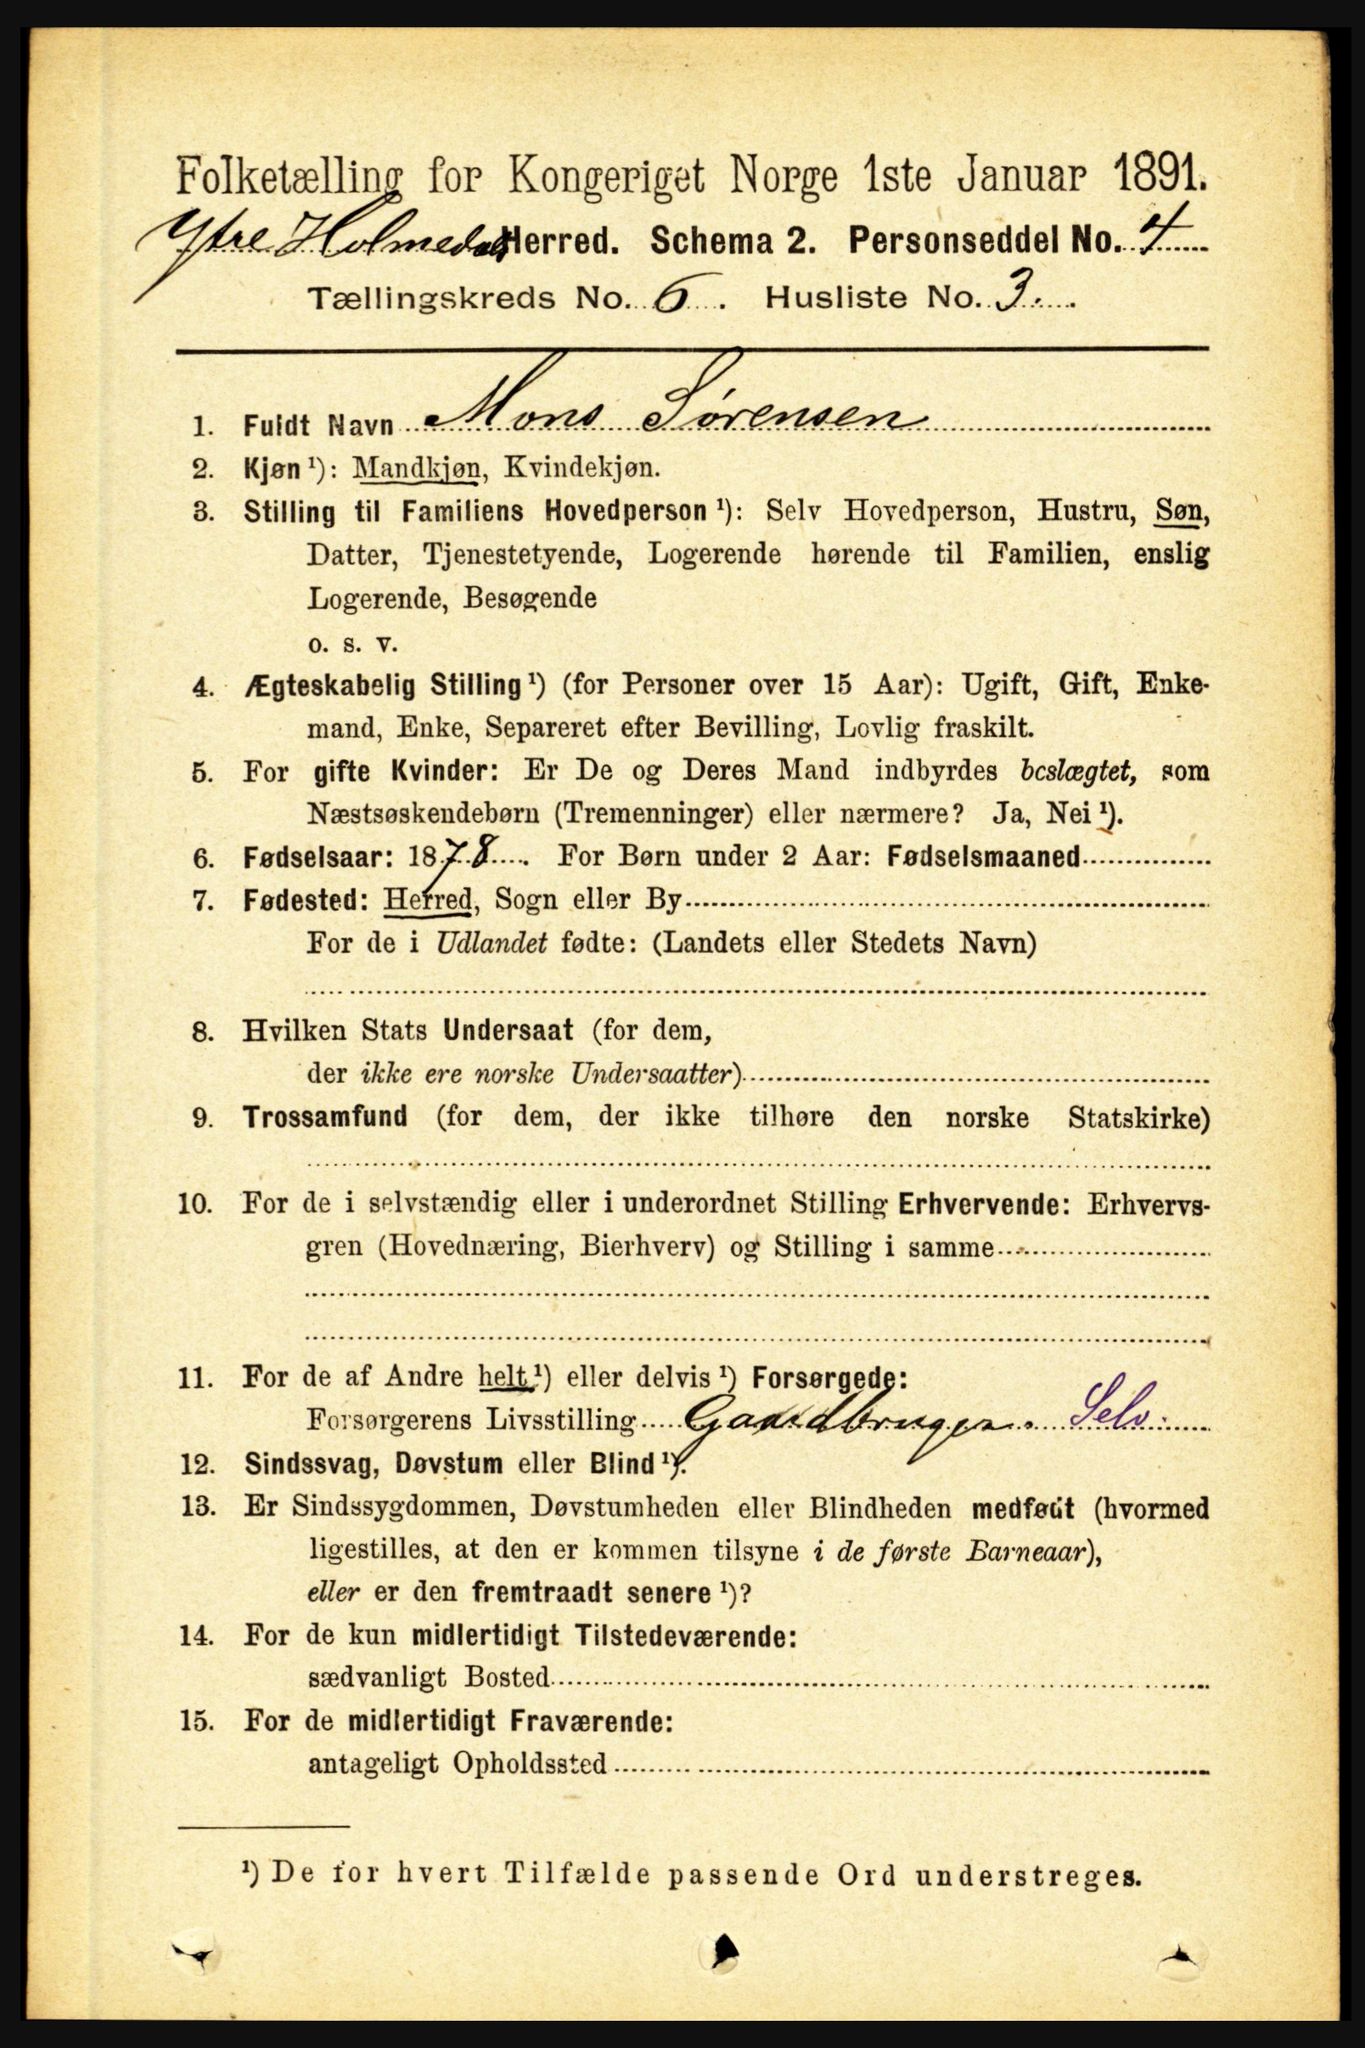 Folketælling for Kongeriget Norge 1ste Januar 1891.
Ytre Holmedal Herred. Schema 2. Personseddel No. 4
Tællingskreds No. 6. Husliste No. 3.
1. Fuldt Navn Mons Sørensen
2. Kjøn ¹): Mandkjøn, Kvindekjøn.
3. Stilling til Familiens Hovedperson ¹): Selv Hovedperson, Hustru, Søn,
Datter, Tjenestetyende, Logerende hørende til Familien, enslig
Logerende, Besøgende
o. s. v.
4. Ægteskabelig Stilling ¹) (for Personer over 15 Aar): Ugift, Gift, Enke-
mand, Enke, Separeret efter Bevilling, Lovlig fraskilt.
5. For gifte Kvinder: Er De og Deres Mand indbyrdes beslægtet, som
Næstsøskendebørn (Tremenninger) eller nærmere? Ja, Nei ¹).
6. Fødselsaar: 1878. For Børn under 2 Aar: Fødselsmaaned
7. Fødested: Herred, Sogn eller By
For de i Udlandet fødte: (Landets eller Stedets Navn)
8. Hvilken Stats Undersaat (for dem,
der ikke ere norske Undersaatter)
9. Trossamfund (for dem, der ikke tilhøre den norske Statskirke)
10. For de i selvstændig eller i underordnet Stilling Erhvervende: Erhvervs-
gren (Hovednæring, Bierhverv) og Stilling i samme
11. For de af Andre helt ¹) eller delvis ¹) Forsørgede:
Forsørgerens Livsstilling Gaardbruger. Selv.
12. Sindssvag, Døvstum eller Blind ¹).
13. Er Sindssygdommen, Døvstumheden eller Blindheden medfødt (hvormed
ligestilles, at den er kommen tilsyne i de første Barneaar),
eller er den fremtraadt senere ¹)?
14. For de kun midlertidigt Tilstedeværende:
sædvanligt Bosted
15. For de midlertidigt Fraværende:
antageligt Opholdssted
¹) De for hvert Tilfælde passende Ord understreges.